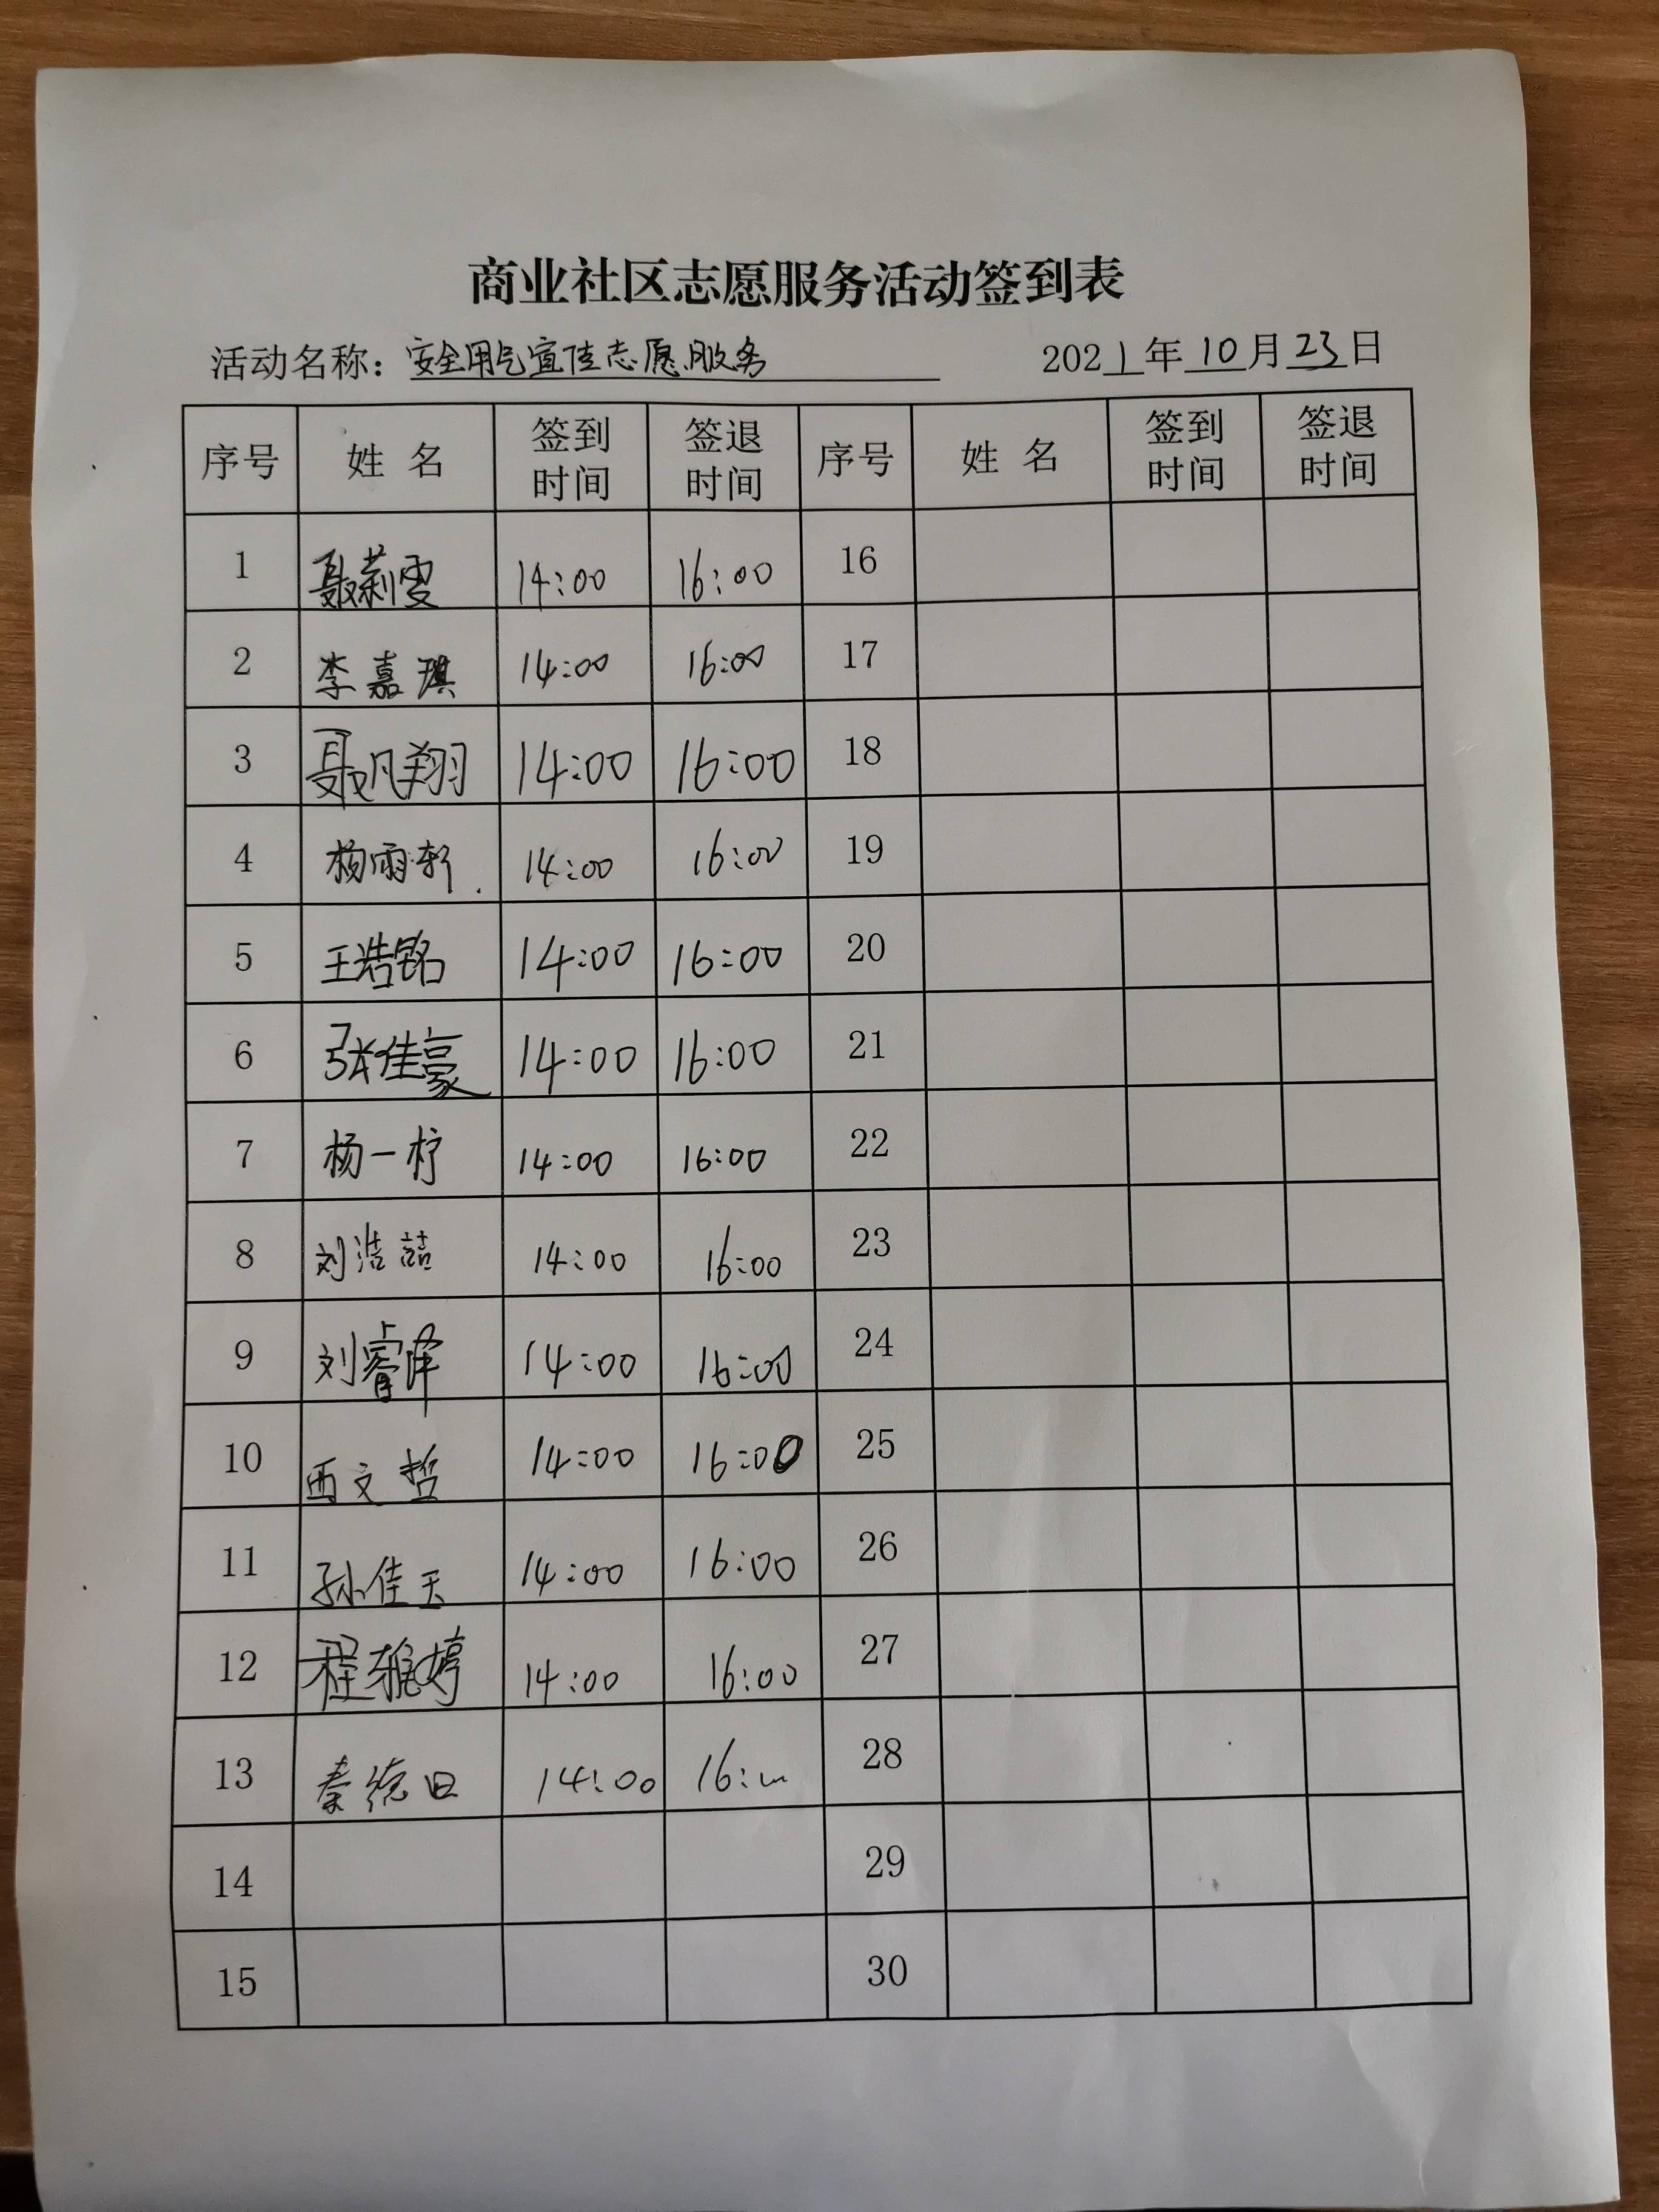 商业社区志愿服务活动签到表
活动名称：安全用气宣传志愿服务 2021年10月23日
序号 姓名 签到时间 签退时间 序号 姓名 签到时间 签退时间
1 聂莉雯 14:00 16:00 16
2 李嘉琪 14:00 16:00 17
3 聂凡翔 14:00 16:00 18
4 杨雨轩 14:00 16:00 19
5 王浩铭 14:00 16:00 20
6 张佳豪 14:00 16:00 21
7 杨一柠 14:00 16:00 22
8 刘浩喆 14:00 16:00 23
9 刘睿泽 14:00 16:00 24
10 西文哲 14:00 16:00 25
11 孙佳玉 14:00 16:00 26
12 程雅婷 14:00 16:00 27
13 秦德 14:00 16: 28
14 29
15 30